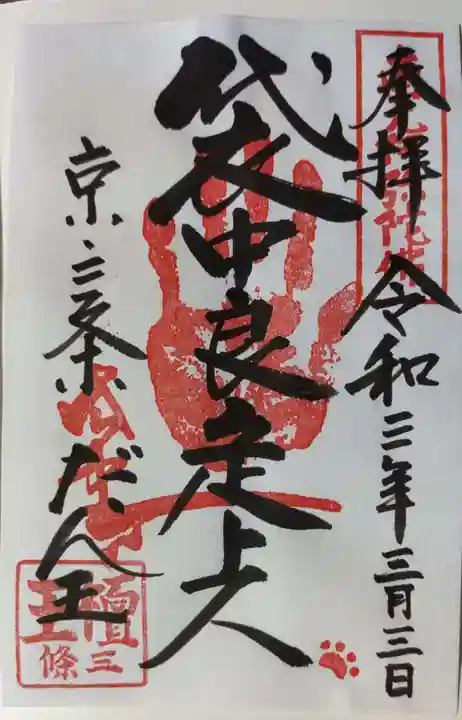 奉拝 令和三年三月三日
袋中良定上人
京・三条 だん王
檀王
三條